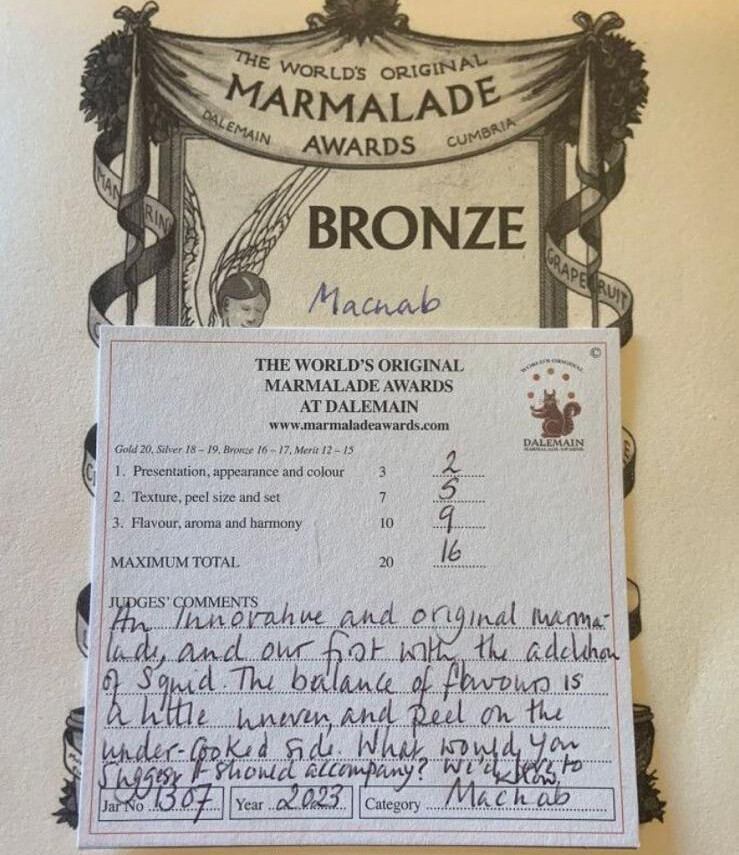 THE WORLD'S ORIGINAL
MARMALADE
DALEMAIN AWARDS CUMBRIA
MAN RIN
BRONZE
GRAPE RUIT
Macnab
THE WORLD'S ORIGINAL
MARMALADE AWARDS
AT DALEMAIN
www.marmaladeawards.com
©
WORLD'S ORIGINAL
DALEMAIN
MARMALADE AWARDS
Gold 20, Silver 18 – 19, Bronze 16 – 17, Merit 12 – 15
1. Presentation, appearance and colour 3 2
2. Texture, peel size and set 7 5
3. Flavour, aroma and harmony 10 9
MAXIMUM TOTAL 20 16
JUDGES' COMMENTS
An Innovative and original marma-
lade, and our first with the addition
of Squid. The balance of flavours is
a little uneven, and peel on the
under-cooked side. What would you
suggest it should accompany? We'd love to
know.
Jar No 1307 Year 2023 Category Macnab